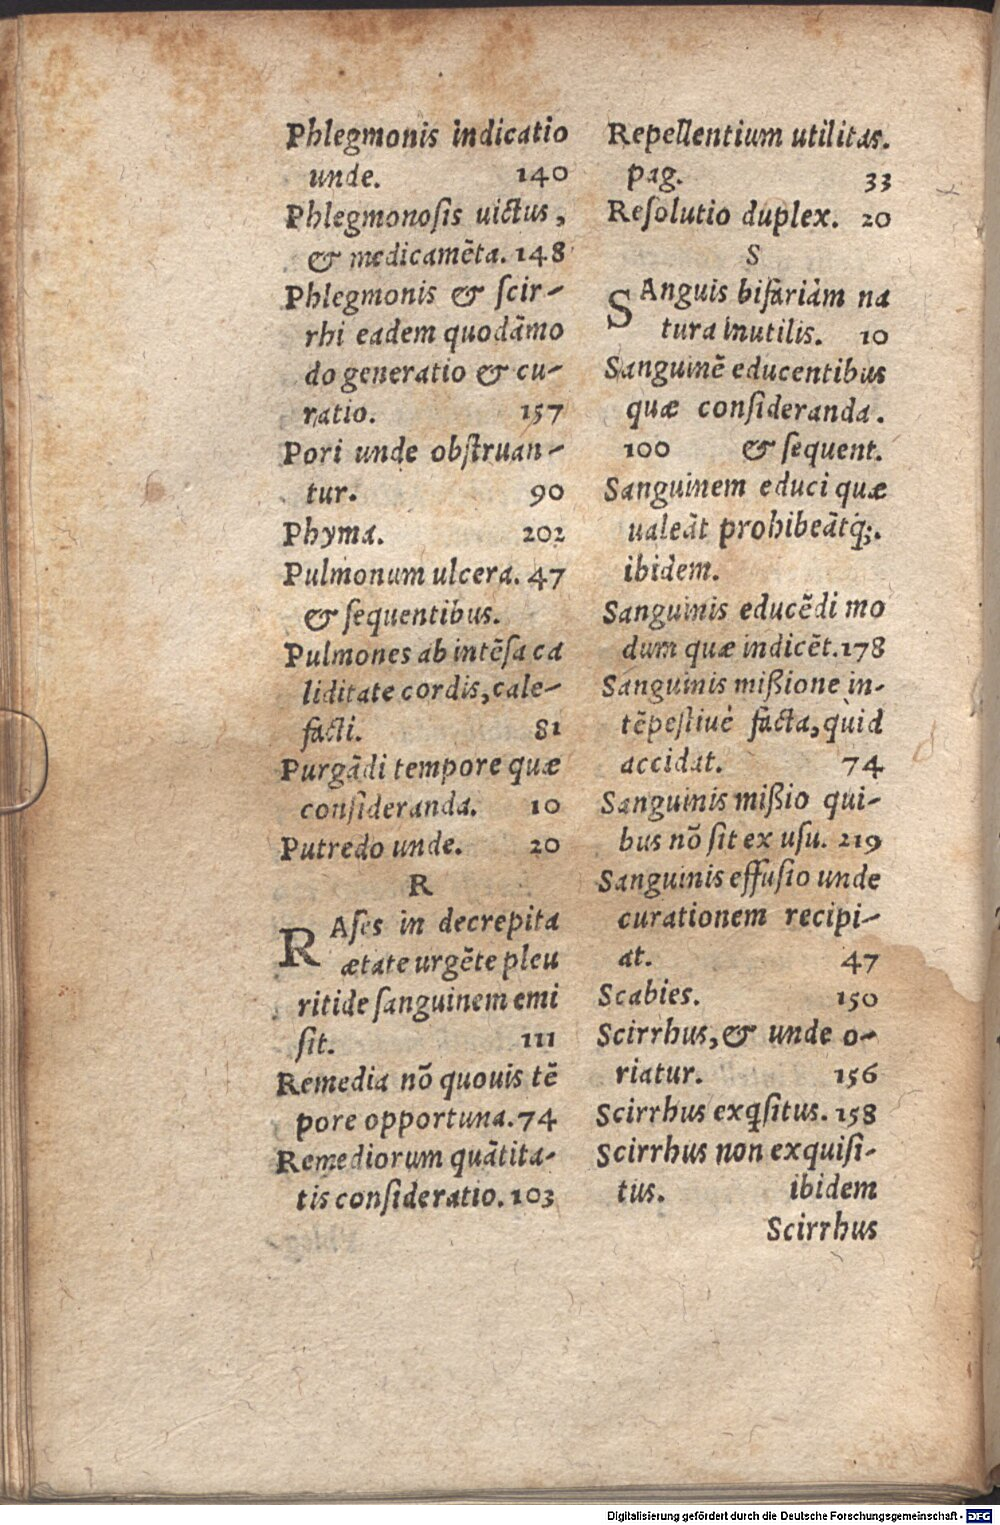 Phlegmonis indicatio
unde. 140
Phlegmonosis uictus,
& medicamẽta. 148
Phlegmonis & scir-
rhi eadem quodãmo
do generatio & cu-
ratio. 157
Pori unde obstruan-
tur. 90
Phyma. 202
Pulmonum ulcera. 47
& sequentibus.
Pulmones ab intẽsa ca
liditate cordis, cale-
facti. 81
Purgãdi tempore quæ
consideranda. 10
Putredo unde. 20
R
RAses in decrepita
ætate urgẽte pleu
ritide sanguinem emi
sit. 111
Remedia nõ quouis tẽ
pore opportuna. 74
Remediorum quãtita-
tis consideratio. 103
Repellentium utilitas.
pag. 33
Resolutio duplex. 20
S
SAnguis bifariàm na
tura inutilis. 10
Sanguinẽ educentibus
quæ consideranda.
100 & sequent.
Sanguinem educi quæ
ualeãt prohibeãtq;.
ibidem.
Sanguinis educẽdi mo
dum quæ indicẽt. 178
Sanguinis mißione in-
tẽpestiuè facta, quid
accidat. 74
Sanguinis mißio qui-
bus nõ sit ex usu. 219
Sanguinis effusio unde
curationem recipi-
at. 47
Scabies. 150
Scirrhus, & unde o-
riatur. 156
Scirrhus exq̃situs. 158
Scirrhus non exquisi-
tus. ibidem
Scirrhus
Digitalisierung gefördert durch die Deutsche Forschungsgemeinschaft - DFG